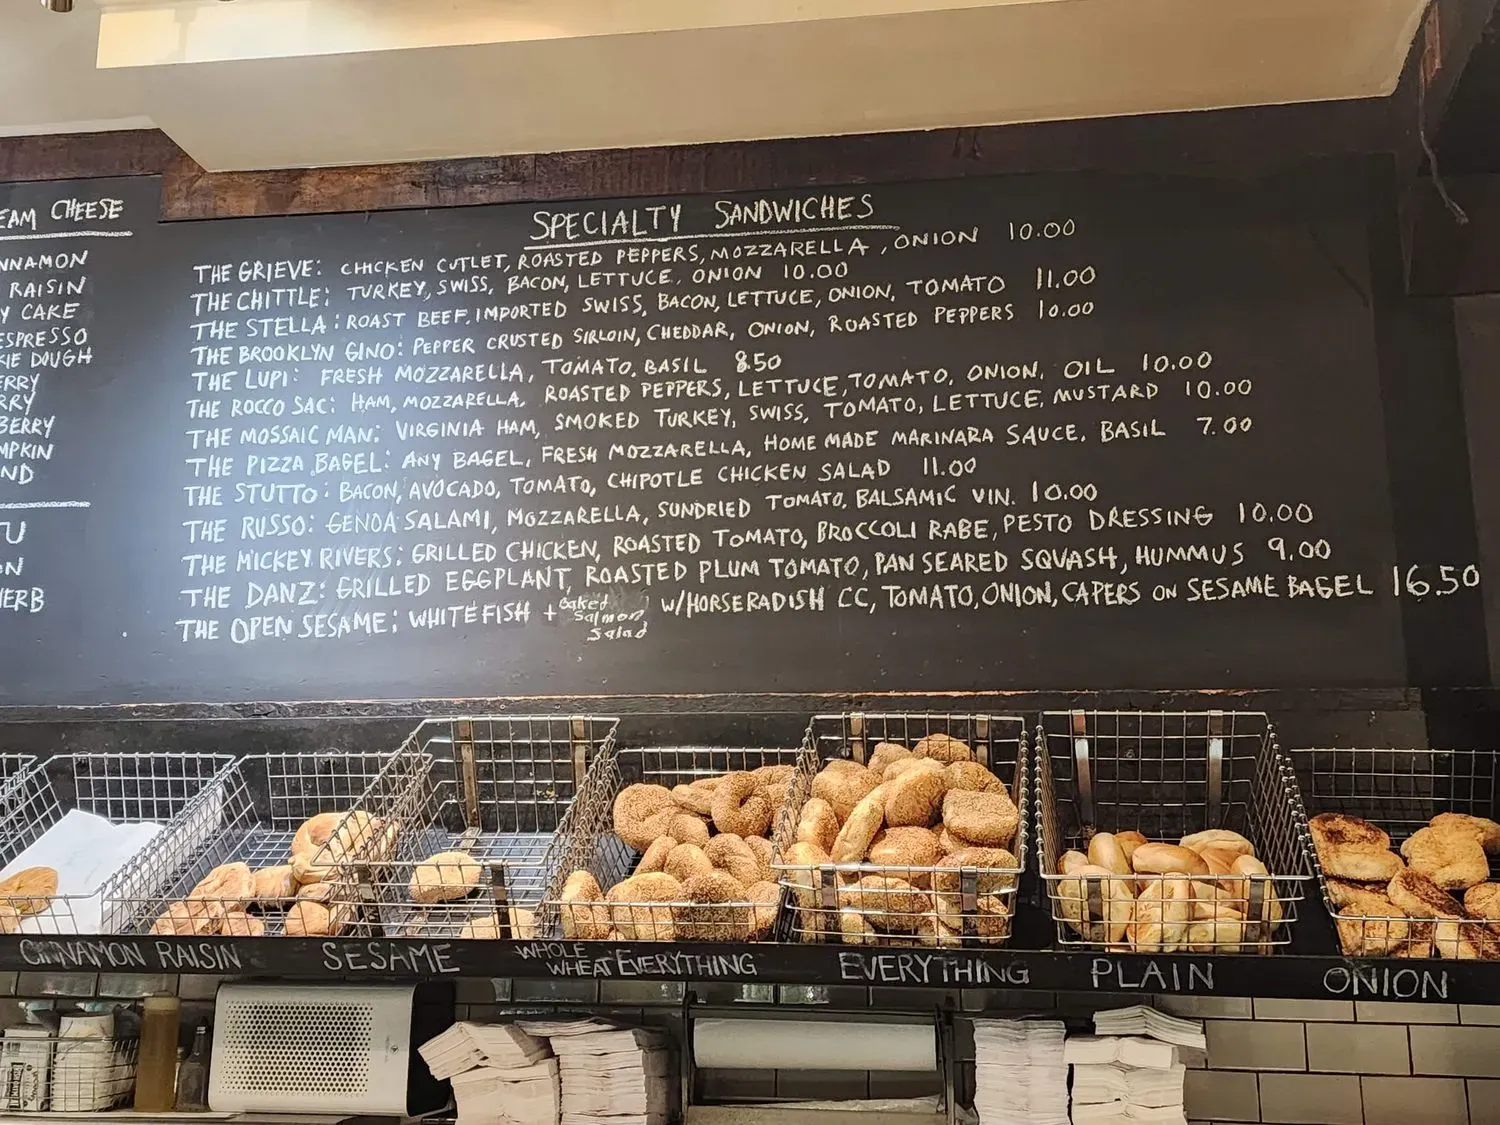 EAM CHEESE
NNAMON
RAISIN
Y CAKE
ESPRESSO
KIE DOUGH
ERRY
RRY
BERRY
MPKIN
ND
TU
ON
HERB
SPECIALTY SANDWICHES
THE GRIEVE: CHICKEN CUTLET, ROASTED PEPPERS, MOZZARELLA, ONION 10.00
THE CHITTLE: TURKEY, SWISS, BACON, LETTUCE, ONION 10.00
THE STELLA: ROAST BEEF, IMPORTED SWISS, BACON, LETTUCE, ONION, TOMATO 11.00
THE BROOKLYN GINO: PEPPER CRUSTED SIRLOIN, CHEDDAR, ONION, ROASTED PEPPERS 10.00
THE LUPI: FRESH MOZZARELLA, TOMATO, BASIL 8.50
THE ROCCO SAC: HAM, MOZZARELLA, ROASTED PEPPERS, LETTUCE, TOMATO, ONION, OIL 10.00
THE MOSSAIC MAN: VIRGINIA HAM, SMOKED TURKEY, SWISS, TOMATO, LETTUCE, MUSTARD 10.00
THE PIZZA BAGEL: ANY BAGEL, FRESH MOZZARELLA, HOME MADE MARINARA SAUCE, BASIL 7.00
THE STUTTO: BACON, AVOCADO, TOMATO, CHIPOTLE CHICKEN SALAD 11.00
THE RUSSO: GENOA SALAMI, MOZZARELLA, SUNDRIED TOMATO, BALSAMIC VIN. 10.00
THE MICKEY RIVERS: GRILLED CHICKEN, ROASTED TOMATO, BROCCOLI RABE, PESTO DRESSING 10.00
THE DANZ: GRILLED EGGPLANT, ROASTED PLUM TOMATO, PAN SEARED SQUASH, HUMMUS 9.00
THE OPEN SESAME: WHITEFISH + Baked Salmon Salad W/HORSERADISH CC, TOMATO, ONION, CAPERS ON SESAME BAGEL 16.50
CINNAMON RAISIN
SESAME
WHOLE WHEAT EVERYTHING
EVERYTHING
PLAIN
ONION